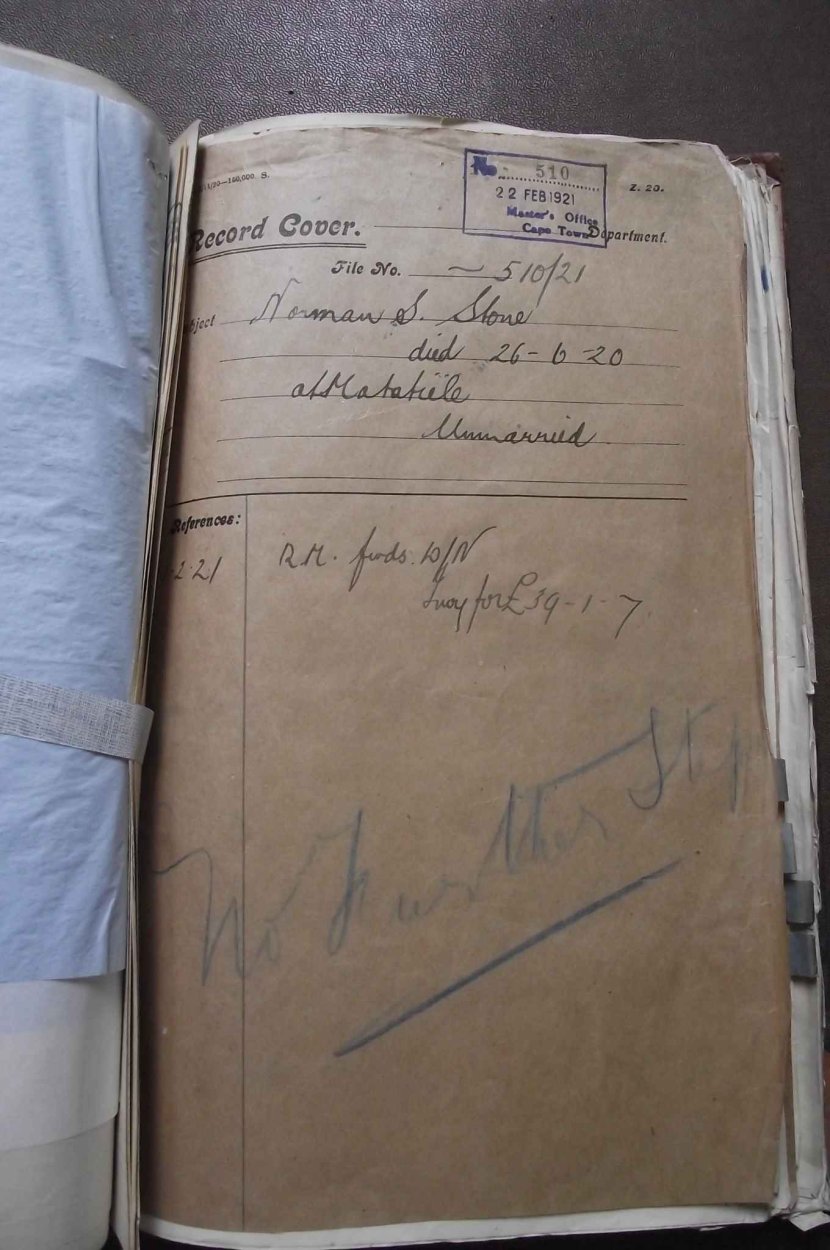 /20—150,000. S.
No. 510
Z. 20.
22 FEB 1921
Master's Office
Cape Town
Record Cover. Department.
File No. — 510/21
ject Norman S. Stone
died 26-6-20
at Matatiële
Unmarried
References:
2.21 R.M. fwds. D/N
Invy for £39-1-7
No Further Step